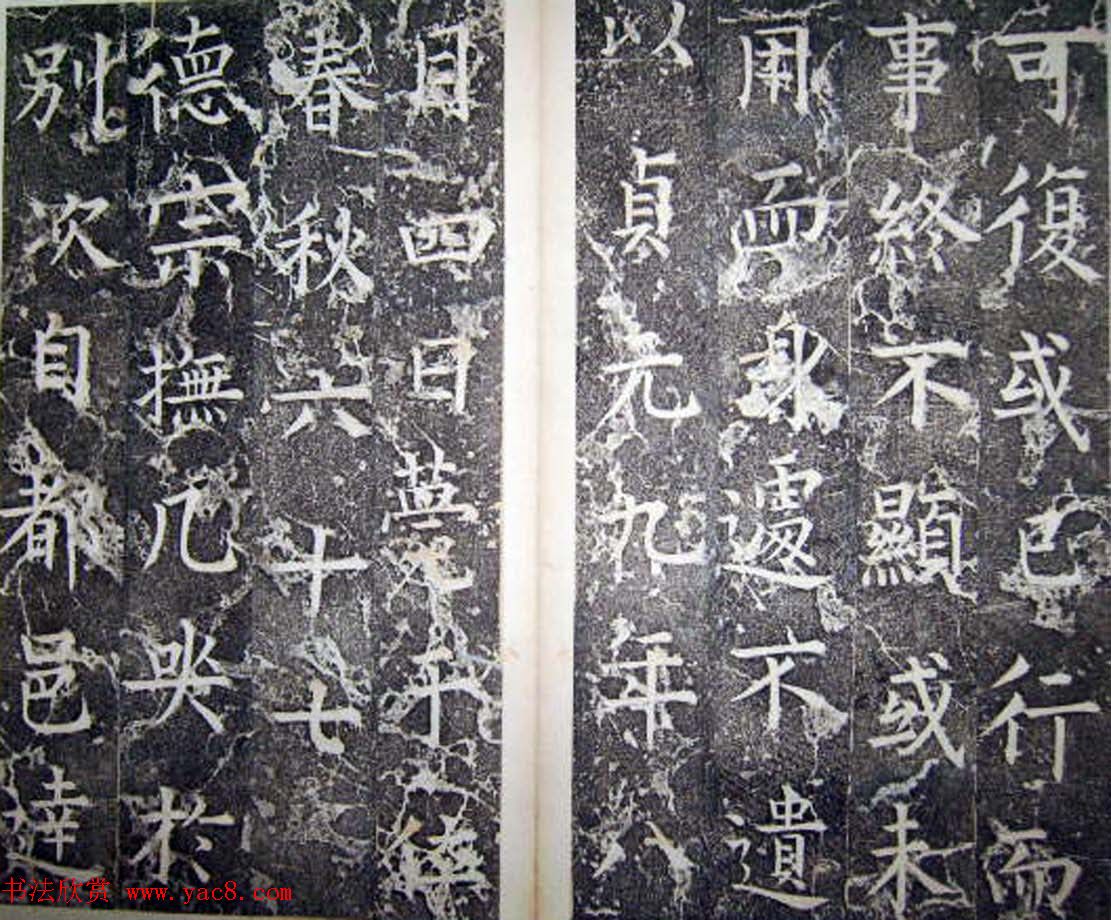 可復或已行而
事終不顯或未
用而身遽不遺
以貞元九年八
月四日薨于
春秋六十七
德宗撫几哭於
別次自都邑達
书法欣赏 www.yac8.com